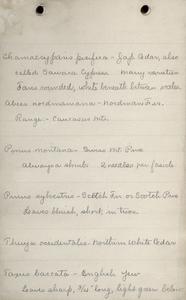 Chamaecyparis pisifera - Jap. Cedar, also
called Sawara Cypress Many varieties
Fans rounded, white beneath between scales
Abies nordmanniana - Nordman Fir.
Range - Caucasus Mts.
Pinus montana - Swiss Mt. Pine
Always a shrub 2 needles per fascicle
Pinus sylvestris - Scotch Fir or Scotch Pine
Leaves bluish, short, in twos.
Thuja occidentalis - Northern White Cedar
Taxus baccata - English Yew
Leaves sharp, long, light green below